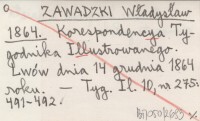 ZAWADZKI Władysław
1864. Korespondencya Ty-
godnika Illustrowanego.
Lwów dnia 14 grudnia 1864
roku. — Tyg. Il. 10, nr 275:
491-492.